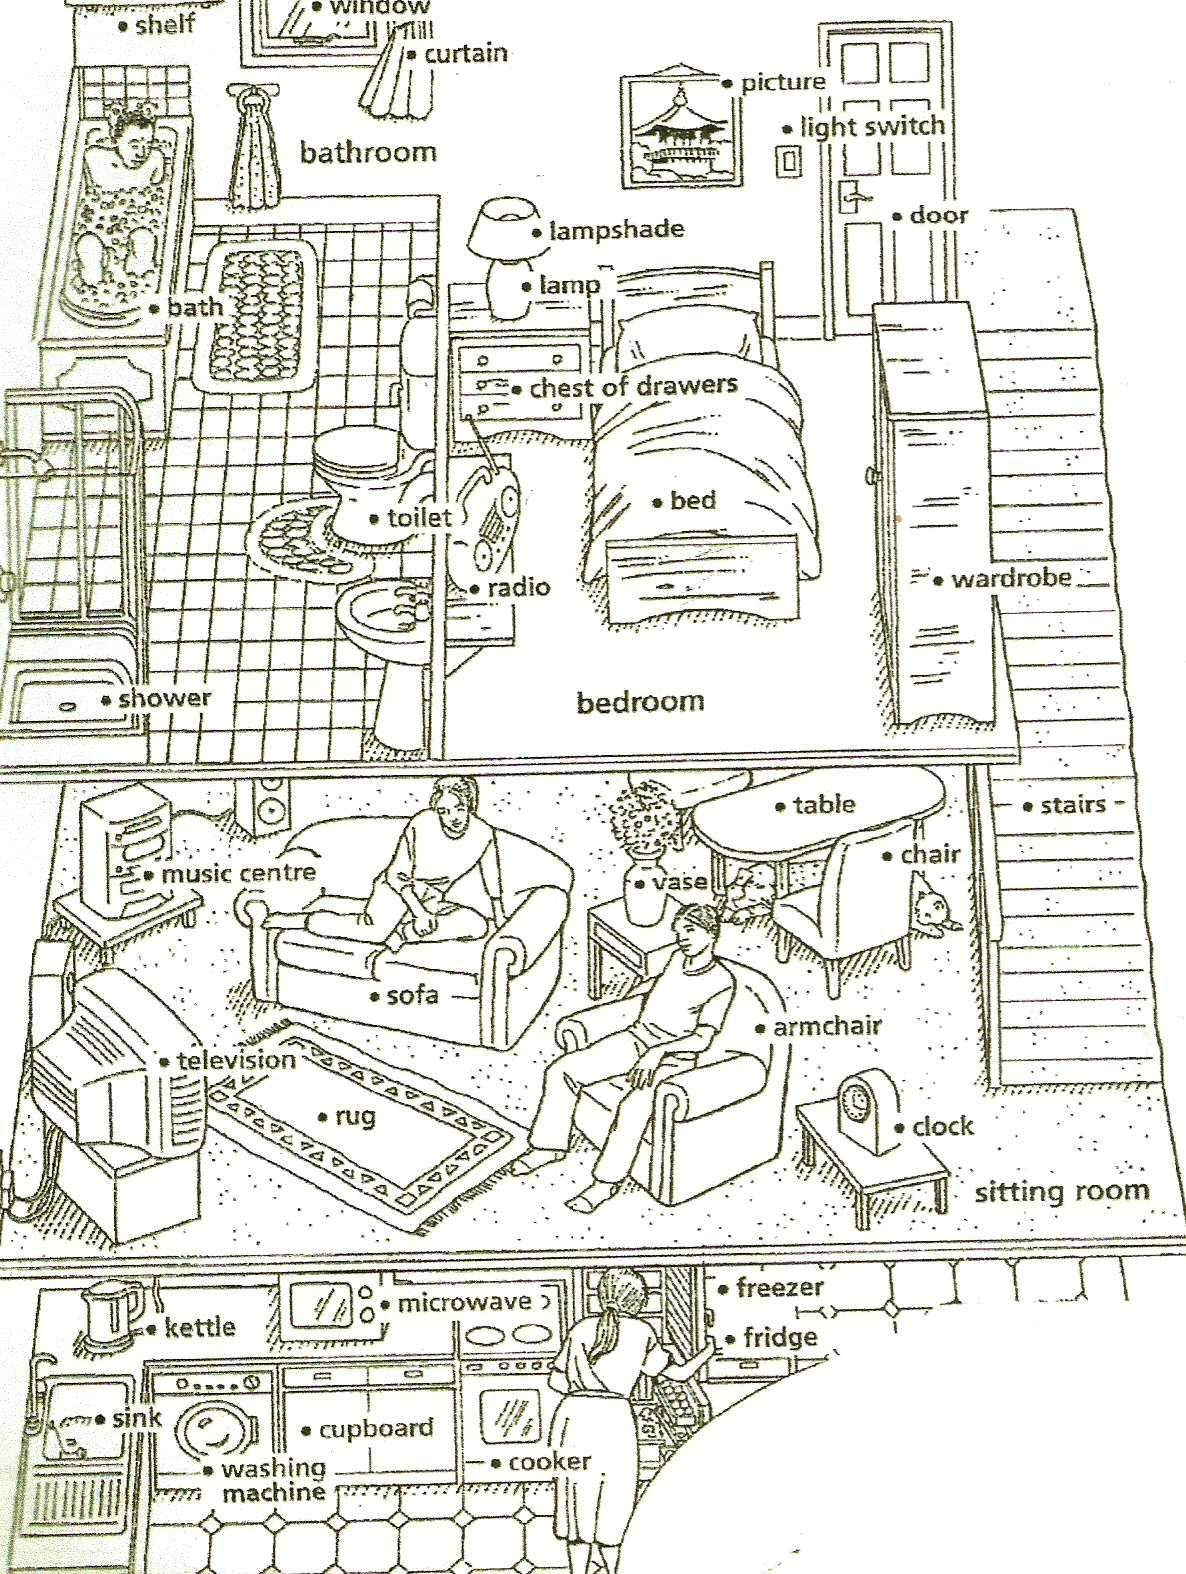 shelf
window
curtain
picture
light switch
bathroom
door
lampshade
lamp
bath
chest of drawers
bed
toilet
wardrobe
radio
shower
bedroom
table
stairs
chair
music centre
vase
sofa
armchair
television
rug
clock
sitting room
freezer
microwave
kettle
fridge
sink
cupboard
cooker
washing
machine